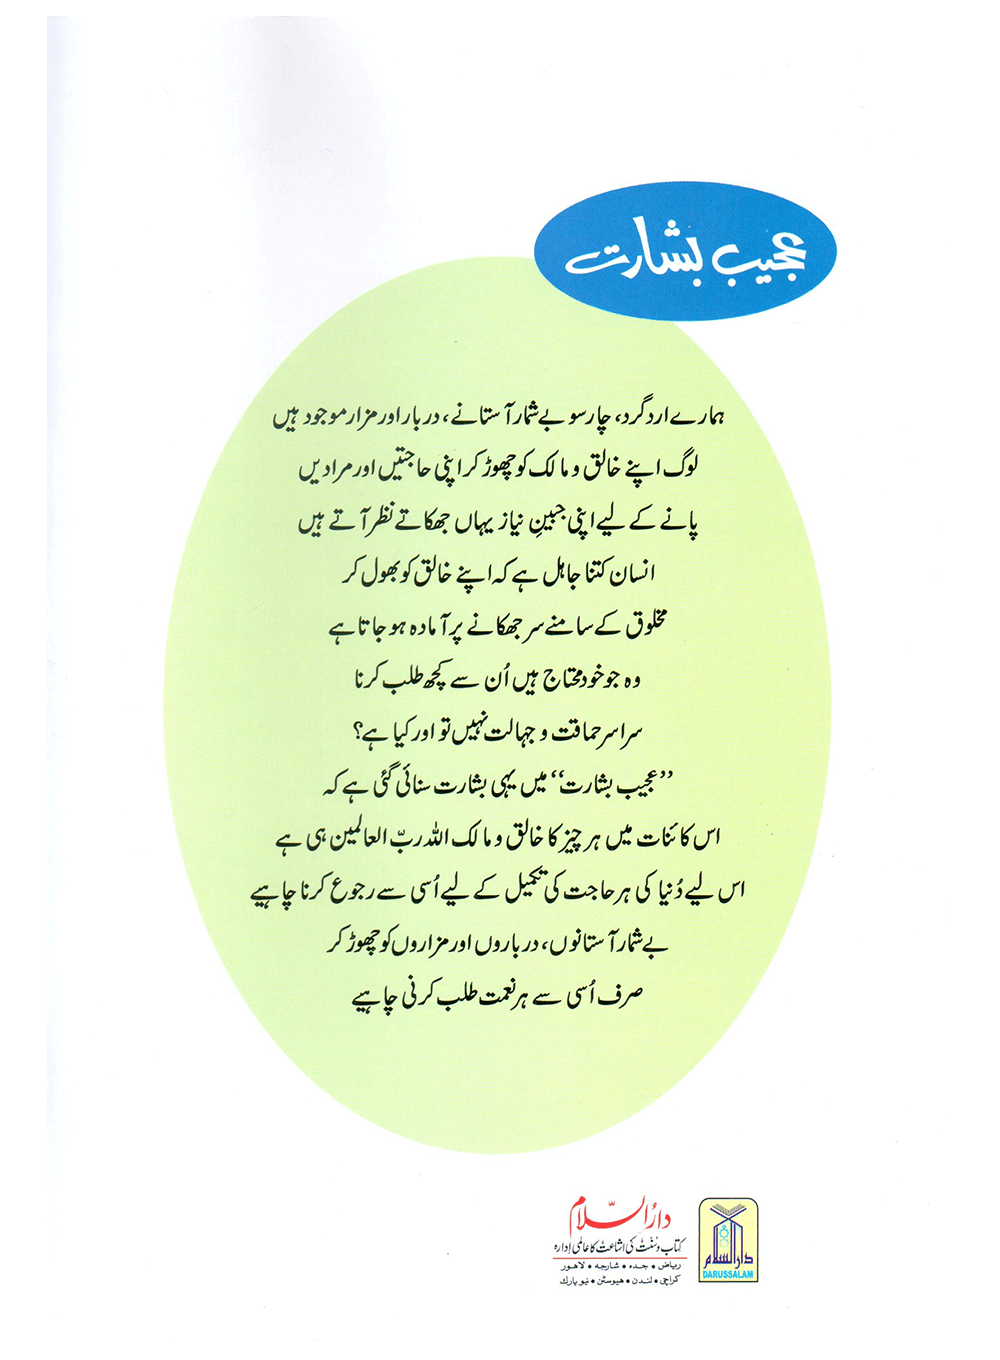 عجیب بشارت
ہمارے اردگرد، چارسو بے شمار آستانے، دربار اور مزار موجود ہیں
لوگ اپنے خالق و مالک کو چھوڑ کر اپنی حاجتیں اور مرادیں
پانے کے لیے اپنی جبینِ نیاز یہاں جھکاتے نظر آتے ہیں
انسان کتنا جاہل ہے کہ اپنے خالق کو بھول کر
مخلوق کے سامنے سر جھکانے پر آمادہ ہو جاتا ہے
وہ جو خود محتاج ہیں اُن سے کچھ طلب کرنا
سراسر حماقت و جہالت نہیں تو اور کیا ہے؟
”عجیب بشارت“ میں یہی بشارت سنائی گئی ہے کہ
اس کائنات میں ہر چیز کا خالق و مالک اللہ ربّ العالمین ہی ہے
اس لیے دُنیا کی ہر حاجت کی تکمیل کے لیے اُسی سے رجوع کرنا چاہیے
بے شمار آستانوں، درباروں اور مزاروں کو چھوڑ کر
صرف اُسی سے ہر نعمت طلب کرنی چاہیے
دارُالسّلام
کتاب و سُنّت کی اشاعت کا عالمی ادارہ
ریاض • جدہ • شارجہ • لاہور
کراچی • لندن • ھیوسٹن • نیو یارک
دارالسلام
DARUSSALAM